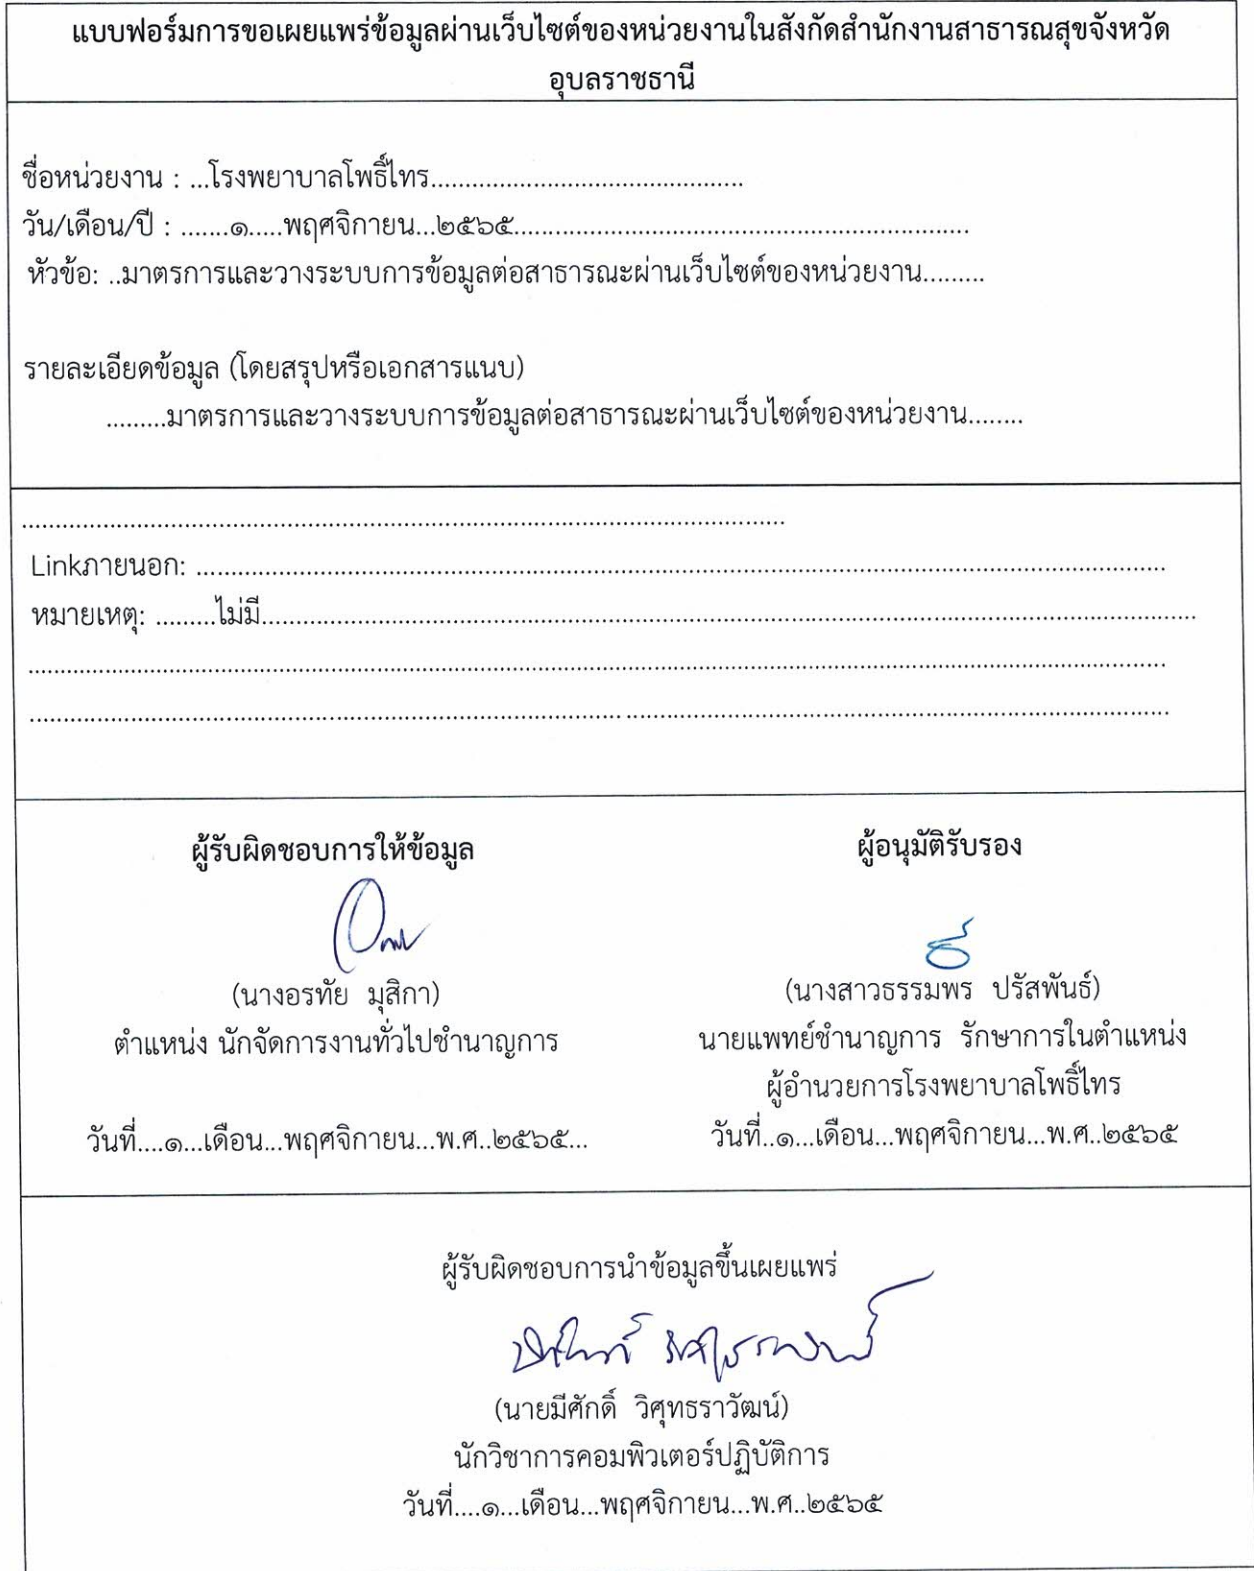 แบบฟอร์มการขอเผยแพร่ข้อมูลผ่านเว็บไซต์ของหน่วยงานในสังกัดสำนักงานสาธารณสุขจังหวัด
อุบลราชธานี
ชื่อหน่วยงาน : ...โรงพยาบาลโพธิ์ไทร..............................................
วัน/เดือน/ปี : .......๑.....พฤศจิกายน...๒๕๖๕....................................................................
หัวข้อ: ..มาตรการและวางระบบการข้อมูลต่อสาธารณะผ่านเว็บไซต์ของหน่วยงาน.........
รายละเอียดข้อมูล (โดยสรุปหรือเอกสารแนบ)
.........มาตรการและวางระบบการข้อมูลต่อสาธารณะผ่านเว็บไซต์ของหน่วยงาน........
..................................................................................................................
Linkภายนอก: .................................................................................................................................................
หมายเหตุ: .........ไม่มี............................................................................................................................................
..........................................................................................................................................................................
..........................................................................................................................................................................
ผู้รับผิดชอบการให้ข้อมูล
(นางอรทัย มุสิกา)
ตำแหน่ง นักจัดการงานทั่วไปชำนาญการ
วันที่....๑...เดือน...พฤศจิกายน...พ.ศ..๒๕๖๕...
ผู้อนุมัติรับรอง
(นางสาวธรรมพร ปรัสพันธ์)
นายแพทย์ชำนาญการ รักษาการในตำแหน่ง
ผู้อำนวยการโรงพยาบาลโพธิ์ไทร
วันที่..๑...เดือน...พฤศจิกายน...พ.ศ..๒๕๖๕
ผู้รับผิดชอบการนำข้อมูลขึ้นเผยแพร่
(นายมีศักดิ์ วิศุทธราวัฒน์)
นักวิชาการคอมพิวเตอร์ปฏิบัติการ
วันที่....๑...เดือน...พฤศจิกายน...พ.ศ..๒๕๖๕